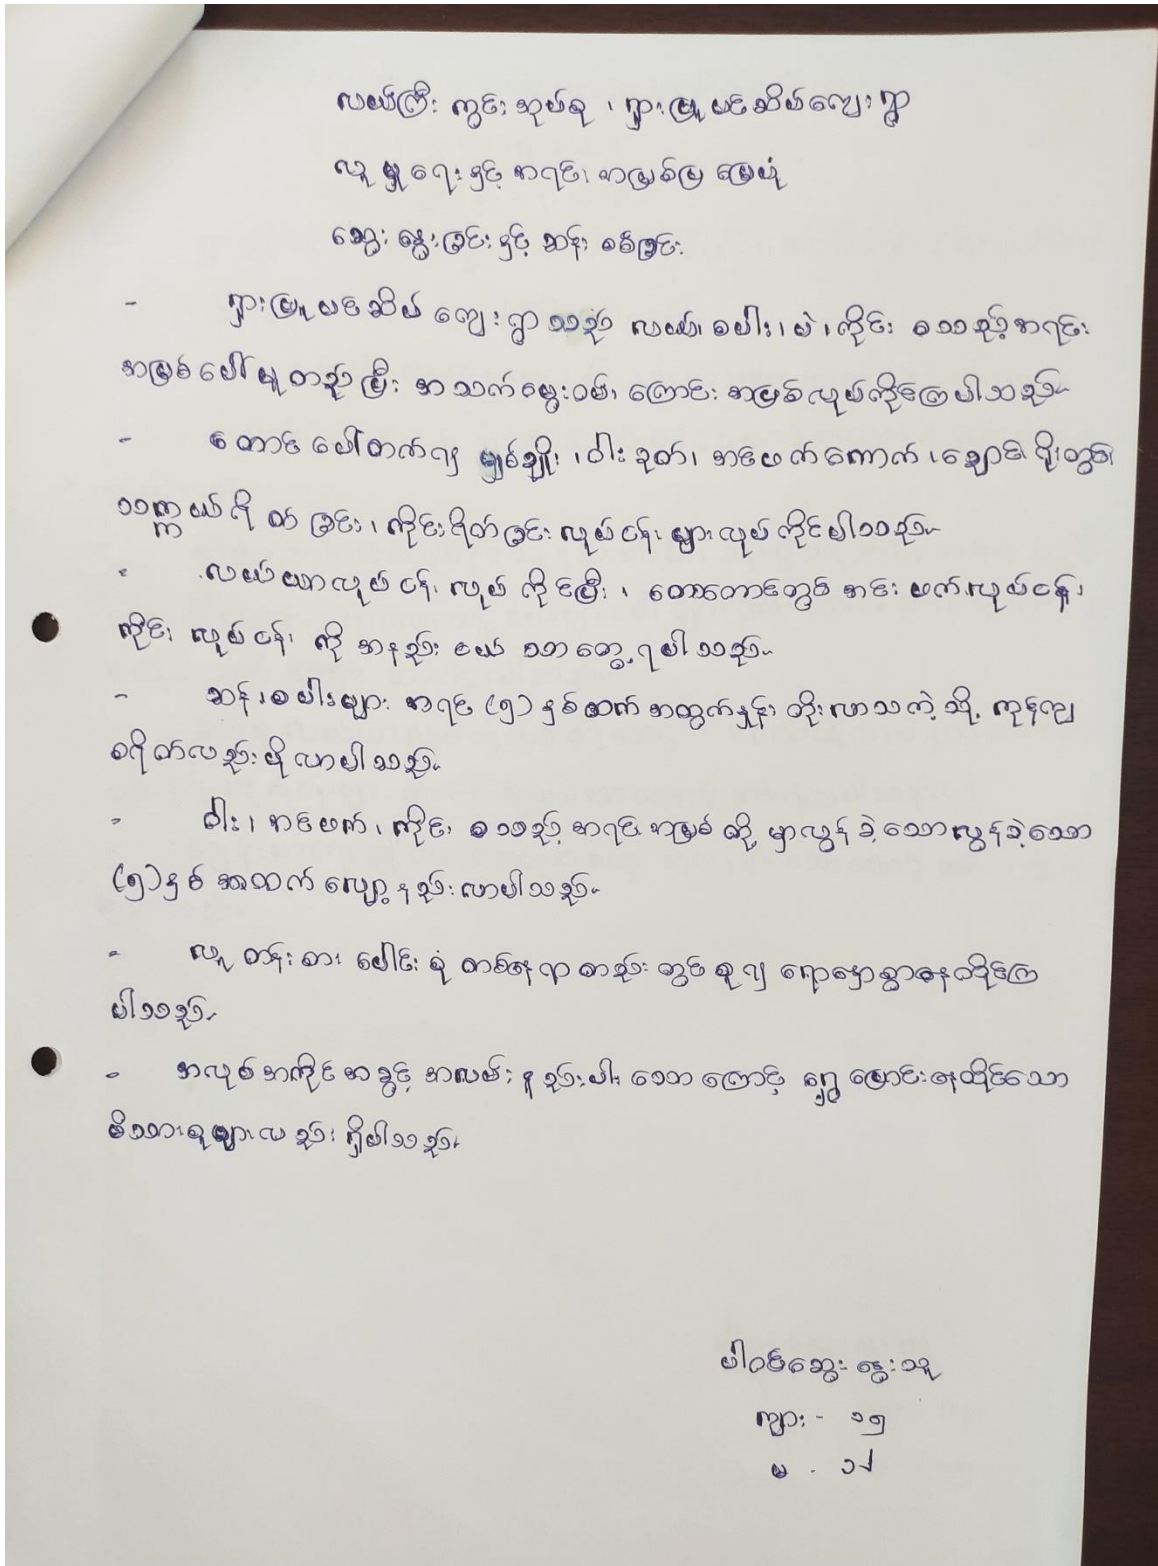 လယ်ကြီးကွင်းအုပ်စု ၊ ရှားဖြူပင်ဆိပ်ကျေးရွာ
လူမှုရေးနှင့် အရင်းအမြစ်ပြ မြေပုံ
ဆွေးနွေးခြင်းနှင့် ဆန်းစစ်ခြင်း
- ရှားဖြူပင်ဆိပ် ကျေးရွာသည် လယ်၊ စပါး၊ ဝါး၊ ကိုင်း စသည့်အရင်း
အမြစ်ပေါ်မူတည်ပြီး အသက်မွေးဝမ်းကြောင်း အဖြစ်လုပ်ကိုင်ကြပါသည်။
- တောင်ပေါ်တက်၍ မျှစ်ချိုး ၊ ဝါးခုတ်၊ အင်ဖက်ကောက်၊ ချောင်းရိုးတွင်
သက္ကယ်ရိတ်ခြင်း ၊ ကိုင်းရိတ်ခြင်း လုပ်ငန်းများလုပ်ကိုင်ပါသည်။
- လယ်ယာလုပ်ငန်း လုပ်ကိုင်ပြီး ၊ တောတောင်တွင် အင်းဖက်လုပ်ငန်း၊
ကိုင်းလုပ်ငန်း ကို အနည်းငယ် သာတွေ့ရပါသည်။
- ဆန်၊စပါးများ အရင် (၅)နှစ်ထက် အထွက်နှုန်း တိုးလာသကဲ့သို့ ကုန်ကျ
စရိတ်လည်းပိုလာပါသည်။
- ဝါး၊ အင်ဖက်၊ ကိုင်း စသည့် အရင်းအမြစ်တို့မှာလွန်ခဲ့သောလွန်ခဲ့သော
(၅)နှစ် အထက် လျော့နည်းလာပါသည်။
- လူတန်းစားပေါင်းစုံ တစ်နေရာတည်းတွင်စု၍ ရောနှောစွာနေထိုင်ကြ
ပါသည်။
- အလုပ်အကိုင်အခွင့်အလမ်းနည်းပါးသောကြောင့် ရွှေ့ပြောင်းနေထိုင်သော
မိသားစုများလည်း ရှိပါသည်။
ပါဝင်ဆွေးနွေးသူ
ကျား - ၁၅
မ -